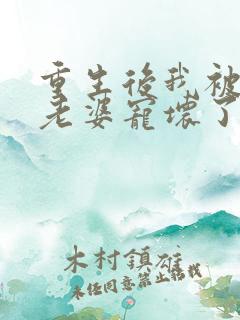 重生後我被
老婆寵壞了
木村鎮雄
未任同意禁止搭載